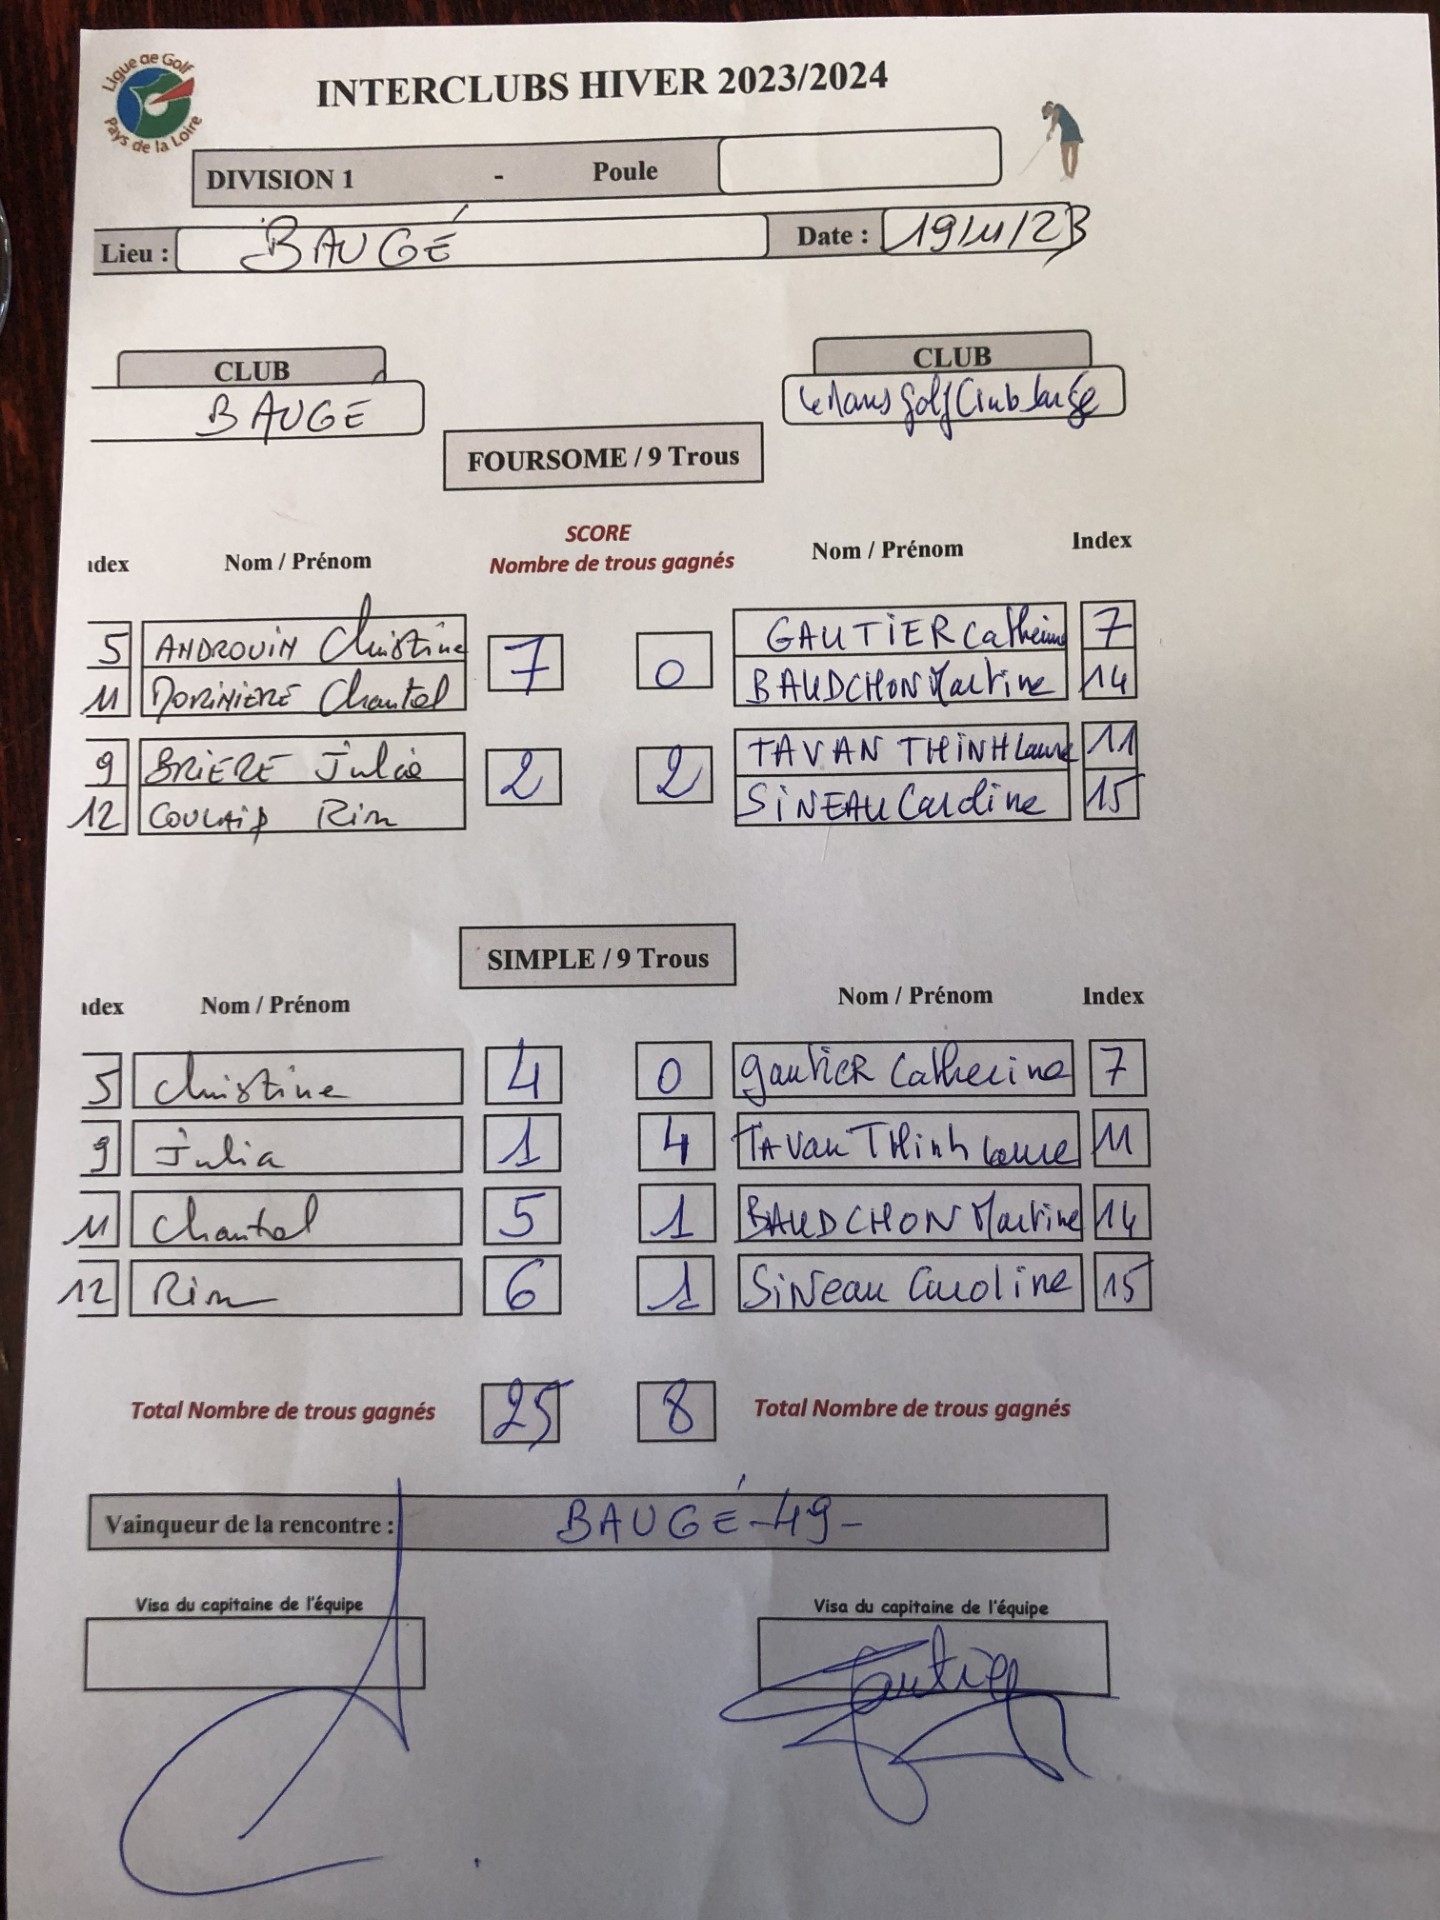 Ligue de Golf
Pays de la Loire
INTERCLUBS HIVER 2023/2024
DIVISION 1 - Poule
Lieu : BAUGÉ Date : 19/11/23
CLUB CLUB
BAUGE Le Mans golf Club
FOURSOME / 9 Trous
SCORE
ıdex Nom / Prénom Nombre de trous gagnés Nom / Prénom Index
5 ANDROUIN Christine 7 0 GAUTIER Catherine 7
11 DORINIERE Chantal BAUDCHON Martine 14
9 BRIERE Julia 2 2 TAVAN THINH Laure 11
12 Rim SINEAU Caroline 15
SIMPLE / 9 Trous
ıdex Nom / Prénom Nom / Prénom Index
5 Christine 4 0 gautier Catherine 7
9 Julia 1 4 TAVan THinh Laure 11
11 Chantal 5 1 BAUDCHON Martine 14
12 Rim 6 1 SiNeau Caroline 15
Total Nombre de trous gagnés 25 8 Total Nombre de trous gagnés
Vainqueur de la rencontre : BAUGÉ -49-
Visa du capitaine de l'équipe Visa du capitaine de l'équipe
Gautier